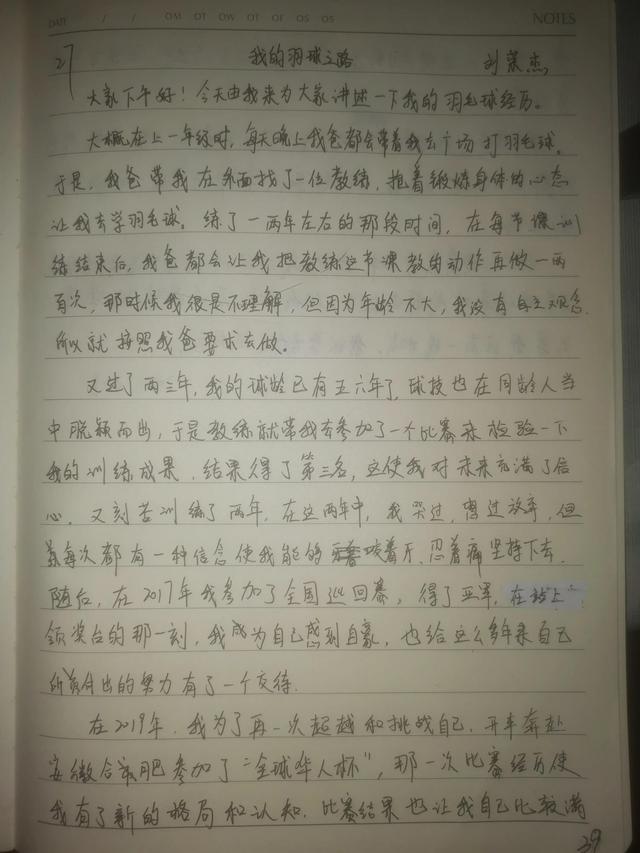 DATE / / OM OT OW OT OF OS OS NOTES
27 我的羽球之路 刘荣杰
大家下午好！今天由我来为大家讲述一下我的羽毛球经历。
大概在上一年级时，每天晚上我爸都会带着我去广场打羽毛球，
于是，我爸带我在外面找了一位教练，抱着锻炼身体的心态
让我去学羽毛球。练了一两年左右的那段时间，在每节课训
练结束后，我爸都会让我把教练这节课教的动作再做一两
百次，那时候我很是不理解，但因为年龄不大，我没有自主观念，
所以就按照我爸要求去做。
又过了两三年，我的球龄已有五六年了，球技也在同龄人当
中脱颖而出，于是教练就带我去参加了一个比赛来检验一下
我的训练成果，结果得了第三名，这使我对未来充满了信
心，又刻苦训练了两年，在这两年中，我哭过，想过放弃，但
每次都有一种信念使我能够咬着牙、忍着痛坚持下去，
随后，在2017年我参加了全国巡回赛，得了亚军，在站上
领奖台的那一刻，我成为自己感到自豪，也给这么多年来自己
所付出的努力有了一个交待。
在2019年，我为了再一次超越和挑战自己，开车奔赴
安徽合肥参加了“全球华人杯”，那一次比赛经历使
我有了新的格局和认知，比赛结果也让我自己比较满
29